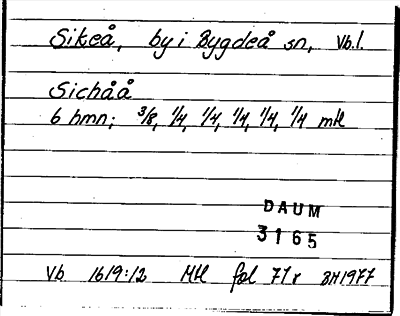 Sikeå, by i Bygdeå sn, Vb.l.
Sichåå
6 hmn; 3/8, 1/4, 1/4, 1/4, 1/4, 1/4 mtl
DAUM
3165
Vb 1619:12 Mtl fol 71r BH1977